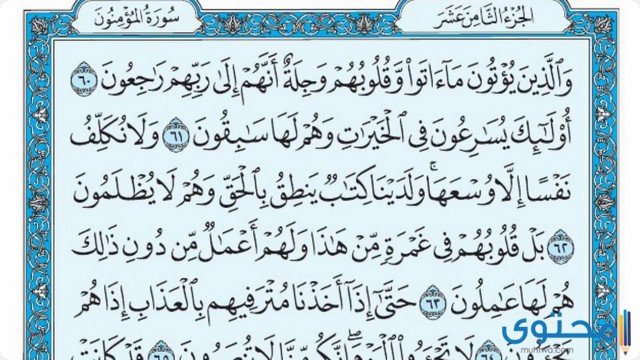 الجزء الثامن عشر
سورة المؤمنون
وَالَّذِينَ يُؤْتُونَ مَا ءَاتَوا وَّقُلُوبُهُمْ وَجِلَةٌ أَنَّهُمْ إِلَىٰ رَبِّهِمْ رَٰجِعُونَ ٦٠
أُوْلَٰٓئِكَ يُسَٰرِعُونَ فِي الْخَيْرَٰتِ وَهُمْ لَهَا سَٰبِقُونَ ٦١ وَلَا نُكَلِّفُ
نَفْسًا إِلَّا وُسْعَهَا ۚ وَلَدَيْنَا كِتَٰبٌ يَنطِقُ بِالْحَقِّ وَهُمْ لَا يُظْلَمُونَ
٦٢ بَلْ قُلُوبُهُمْ فِي غَمْرَةٍ مِّنْ هَٰذَا وَلَهُمْ أَعْمَٰلٌ مِّن دُونِ ذَٰلِكَ
هُمْ لَهَا عَٰمِلُونَ ٦٣ حَتَّىٰٓ إِذَآ أَخَذْنَا مُتْرَفِيهِم بِالْعَذَابِ إِذَا هُمْ
محتوي
muhtwa.com